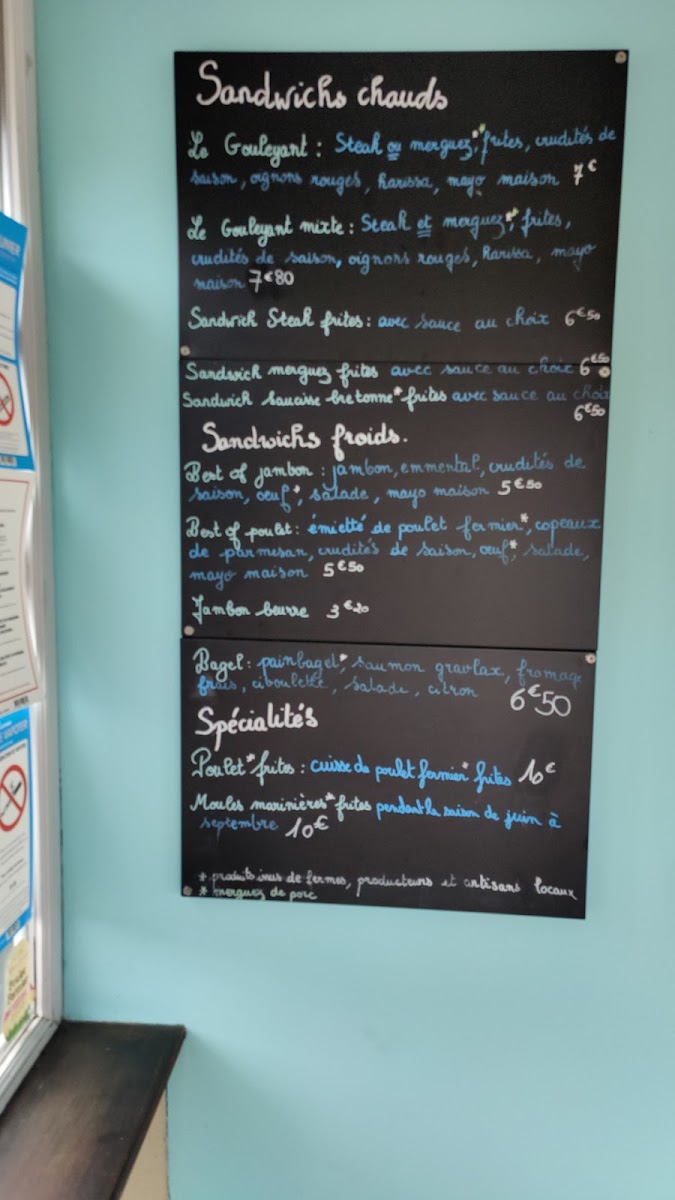 Sandwichs chauds
Le Gouleyant : Steak ou merguez**, frites, crudités de
saison, oignons rouges, harissa, mayo maison 7€
Le Gouleyant mixte : Steak et merguez**, frites,
crudités de saison, oignons rouges, harissa, mayo
maison 7€80
Sandwich Steak frites : avec sauce au choix 6€50
Sandwich merguez frites avec sauce au choix 6€50
Sandwich saucisse bretonne* frites avec sauce au choix
6€50
Sandwichs froids.
Best of jambon : jambon, emmental, crudités de
saison, oeuf*, salade, mayo maison 5€50
Best of poulet : émietté de poulet fermier*, copeaux
de parmesan, crudités de saison, oeuf*, salade,
mayo maison 5€50
Jambon beurre 3€20
Bagel : pain bagel*, saumon gravlax, fromage
frais, ciboulette, salade, citron 6€50
Spécialités
Poulet* frites : cuisse de poulet fermier* frites 10€
Moules marinières* frites pendant la saison de juin à
septembre 10€
* produits issus de fermes, producteurs et artisans locaux
* merguez de porc